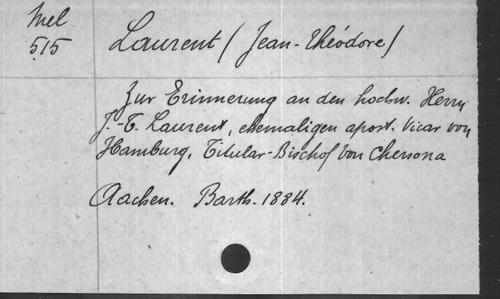 Mel.
515
Laurent (Jean-Théodore)
Zur Erinnerung an den hochw. Herrn
J.-T. Laurent, ehemaligen apost. Vicar von
Hamburg, Titular-Bischof von Chersona
Aachen. Barth. 1884.